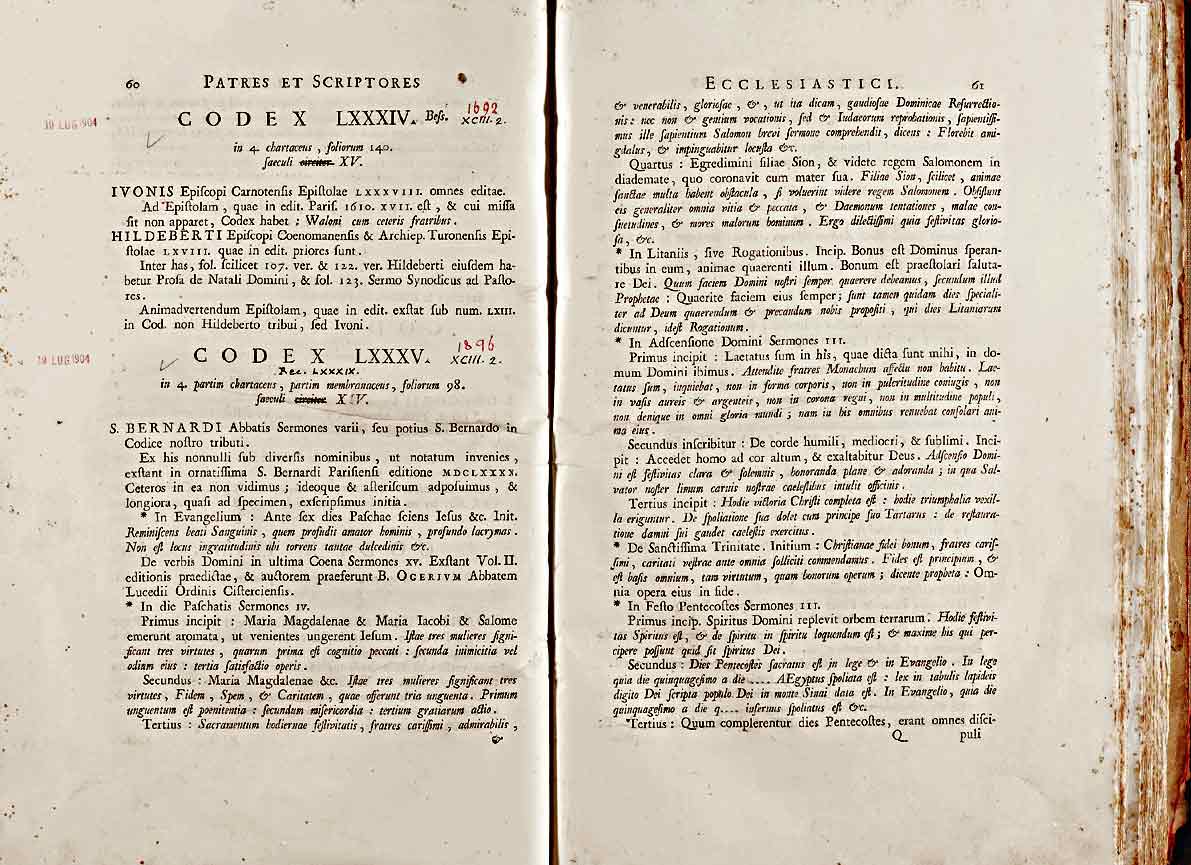 60 PATRES ET SCRIPTORES
CODEX LXXXIV. Beſſ. 1692
XCIII. 2.
30 LUG 1904
in 4. chartaceus , foliorum 140.
ſaeculi circiter XV.
IVONIS Epiſcopi Carnotenſis Epiſtolae LXXXVIII. omnes editae.
Ad Epiſtolam , quae in edit. Pariſ. 1610. XVII. eſt , & cui miſſa
ſit non apparet, Codex habet : Waloni cum ceteris fratribus.
HILDEBERTI Epiſcopi Coenomanenſis & Archiep. Turonenſis Epi-
ſtolae LXVIII. quae in edit. priores ſunt.
Inter has, fol. ſcilicet 107. ver. & 122. ver. Hildeberti eiuſdem ha-
betur Proſa de Natali Domini, & fol. 123. Sermo Synodicus ad Paſto-
res.
Animadvertendum Epiſtolam, quae in edit. exſtat ſub num. LXIII.
in Cod. non Hildeberto tribui, ſed Ivoni.
CODEX LXXXV. 1896
XCIII. 2.
30 LUG 1904
Rec. LXXXIX.
in 4. partim chartaceus, partim membranaceus, foliorum 98.
ſaeculi circiter XIV.
S. BERNARDI Abbatis Sermones varii, ſeu potius S. Bernardo in
Codice noſtro tributi.
Ex his nonnulli ſub diverſis nominibus, ut notatum invenies,
exſtant in ornatiſſima S. Bernardi Pariſienſi editione MDCLXXXX.
Ceteros in ea non vidimus ; ideoque & aſteriſcum adpoſuimus , &
longiora, quaſi ad ſpecimen, exſcripſimus initia.
* In Evangelium : Ante ſex dies Paſchae ſciens Ieſus &c. Init.
Reminiſcens beati Sanguinis , quem profudit amator hominis , profundo lacrymas.
Non eſt locus ingratitudinis ubi torrens tantae dulcedinis &c.
De verbis Domini in ultima Coena Sermones XV. Exſtant Vol. II.
editionis praedictae, & auctorem praeferunt B. OGERIVM Abbatem
Lucedii Ordinis Ciſtercienſis.
* In die Paſchatis Sermones IV.
Primus incipit : Maria Magdalenae & Maria Iacobi & Salome
emerunt aromata, ut venientes ungerent Ieſum. Iſtae tres mulieres ſigni-
ficant tres virtutes , quarum prima eſt cognitio peccati : ſecunda inimicitia vel
odium eius : tertia ſatisfactio operis.
Secundus : Maria Magdalenae &c. Iſtae tres mulieres ſignificant tres
virtutes, Fidem , Spem , & Caritatem , quae offerunt tria unguenta. Primum
unguentum eſt poenitentia : ſecundum miſericordia : tertium gratiarum actio.
Tertius : Sacramentum hodiernae feſtivitatis, fratres cariſſimi , admirabilis ,
&
ECCLESIASTICI. 61
& venerabilis, glorioſae , & , ut ita dicam, gaudioſae Dominicae Reſurrectio-
nis: nec non & gentium vocationis , ſed & Iudaeorum reprobationis, ſapientiſſi-
mus ille ſapientium Salomon brevi ſermone comprehendit, dicens : Florebit ami-
gdalus, & impinguabitur locuſta &c.
Quartus : Egredimini filiae Sion, & videte regem Salomonem in
diademate, quo coronavit eum mater ſua. Filiae Sion, ſcilicet , animae
ſanctae multa habent obſtacula , ſi voluerint videre regem Salomonem. Obſiſtunt
eis generaliter omnia vitia & peccata , & Daemonum tentationes , malae con-
ſuetudines, & mores malorum hominum . Ergo dilectiſſimi quia feſtivitas glorio-
ſa, &c.
* In Litaniis , ſive Rogationibus. Incip. Bonus eſt Dominus ſperan-
tibus in eum, animae quaerenti illum. Bonum eſt praeſtolari ſaluta-
re Dei. Quum faciem Domini noſtri ſemper quaerere debeamus, ſecundum illud
Prophetae : Quaerite faciem eius ſemper; ſunt tamen quidam dies ſpeciali-
ter ad Deum quaerendum & precandum nobis propoſiti , qui dies Litaniarum
dicuntur, ideſt Rogationum.
* In Adſcenſione Domini Sermones III.
Primus incipit : Laetatus ſum in his, quae dicta ſunt mihi, in do-
mum Domini ibimus. Attendite fratres Monachum affectu non habitu. Lae-
tatus ſum, inquiebat, non in forma corporis, non in pulcritudine coniugis , non
in vaſis aureis & argenteis, non in corona regni, non in multitudine populi,
non denique in omni gloria mundi ; nam in his omnibus renuebat conſolari ani-
ma eius.
Secundus inſcribitur : De corde humili, mediocri, & ſublimi. Inci-
pit : Accedet homo ad cor altum, & exaltabitur Deus. Adſcenſio Domi-
ni eſt feſtivitas clara & ſolemnis , honoranda plane & adoranda ; in qua Sal-
vator noſter limum carnis noſtrae caeleſtibus intulit officinis.
Tertius incipit : Hodie victoria Chriſti completa eſt : hodie triumphalia vexil-
la eriguntur. De ſpoliatione ſua dolet cum principe ſuo Tartarus : de reſtaura-
tione damni ſui gaudet caeleſtis exercitus.
* De Sanctiſſima Trinitate. Initium : Chriſtianae fidei bonum, fratres cariſ-
ſimi, caritati veſtrae ante omnia ſolliciti commendamus. Fides eſt principium , &
eſt baſis omnium, tam virtutum, quam bonorum operum ; dicente propheta : Om-
nia opera eius in fide.
* In Feſto Pentecoſtes Sermones III.
Primus incip. Spiritus Domini replevit orbem terrarum. Hodie feſtivi-
tas Spiritus eſt, & de ſpiritu in ſpiritu loquendum eſt; & maxime his qui per-
cipere poſſunt quid ſit ſpiritus Dei.
Secundus : Dies Pentecoſtes ſacratus eſt in lege & in Evangelio . In lege
quia die quinquageſimo a die .... AEgyptus ſpoliata eſt : lex in tabulis lapideis
digito Dei ſcripta populo Dei in monte Sinai data eſt. In Evangelio, quia die
quinquageſimo a die q.... infernus ſpoliatus eſt &c.
Tertius : Quum complerentur dies Pentecoſtes, erant omnes diſci-
Q puli